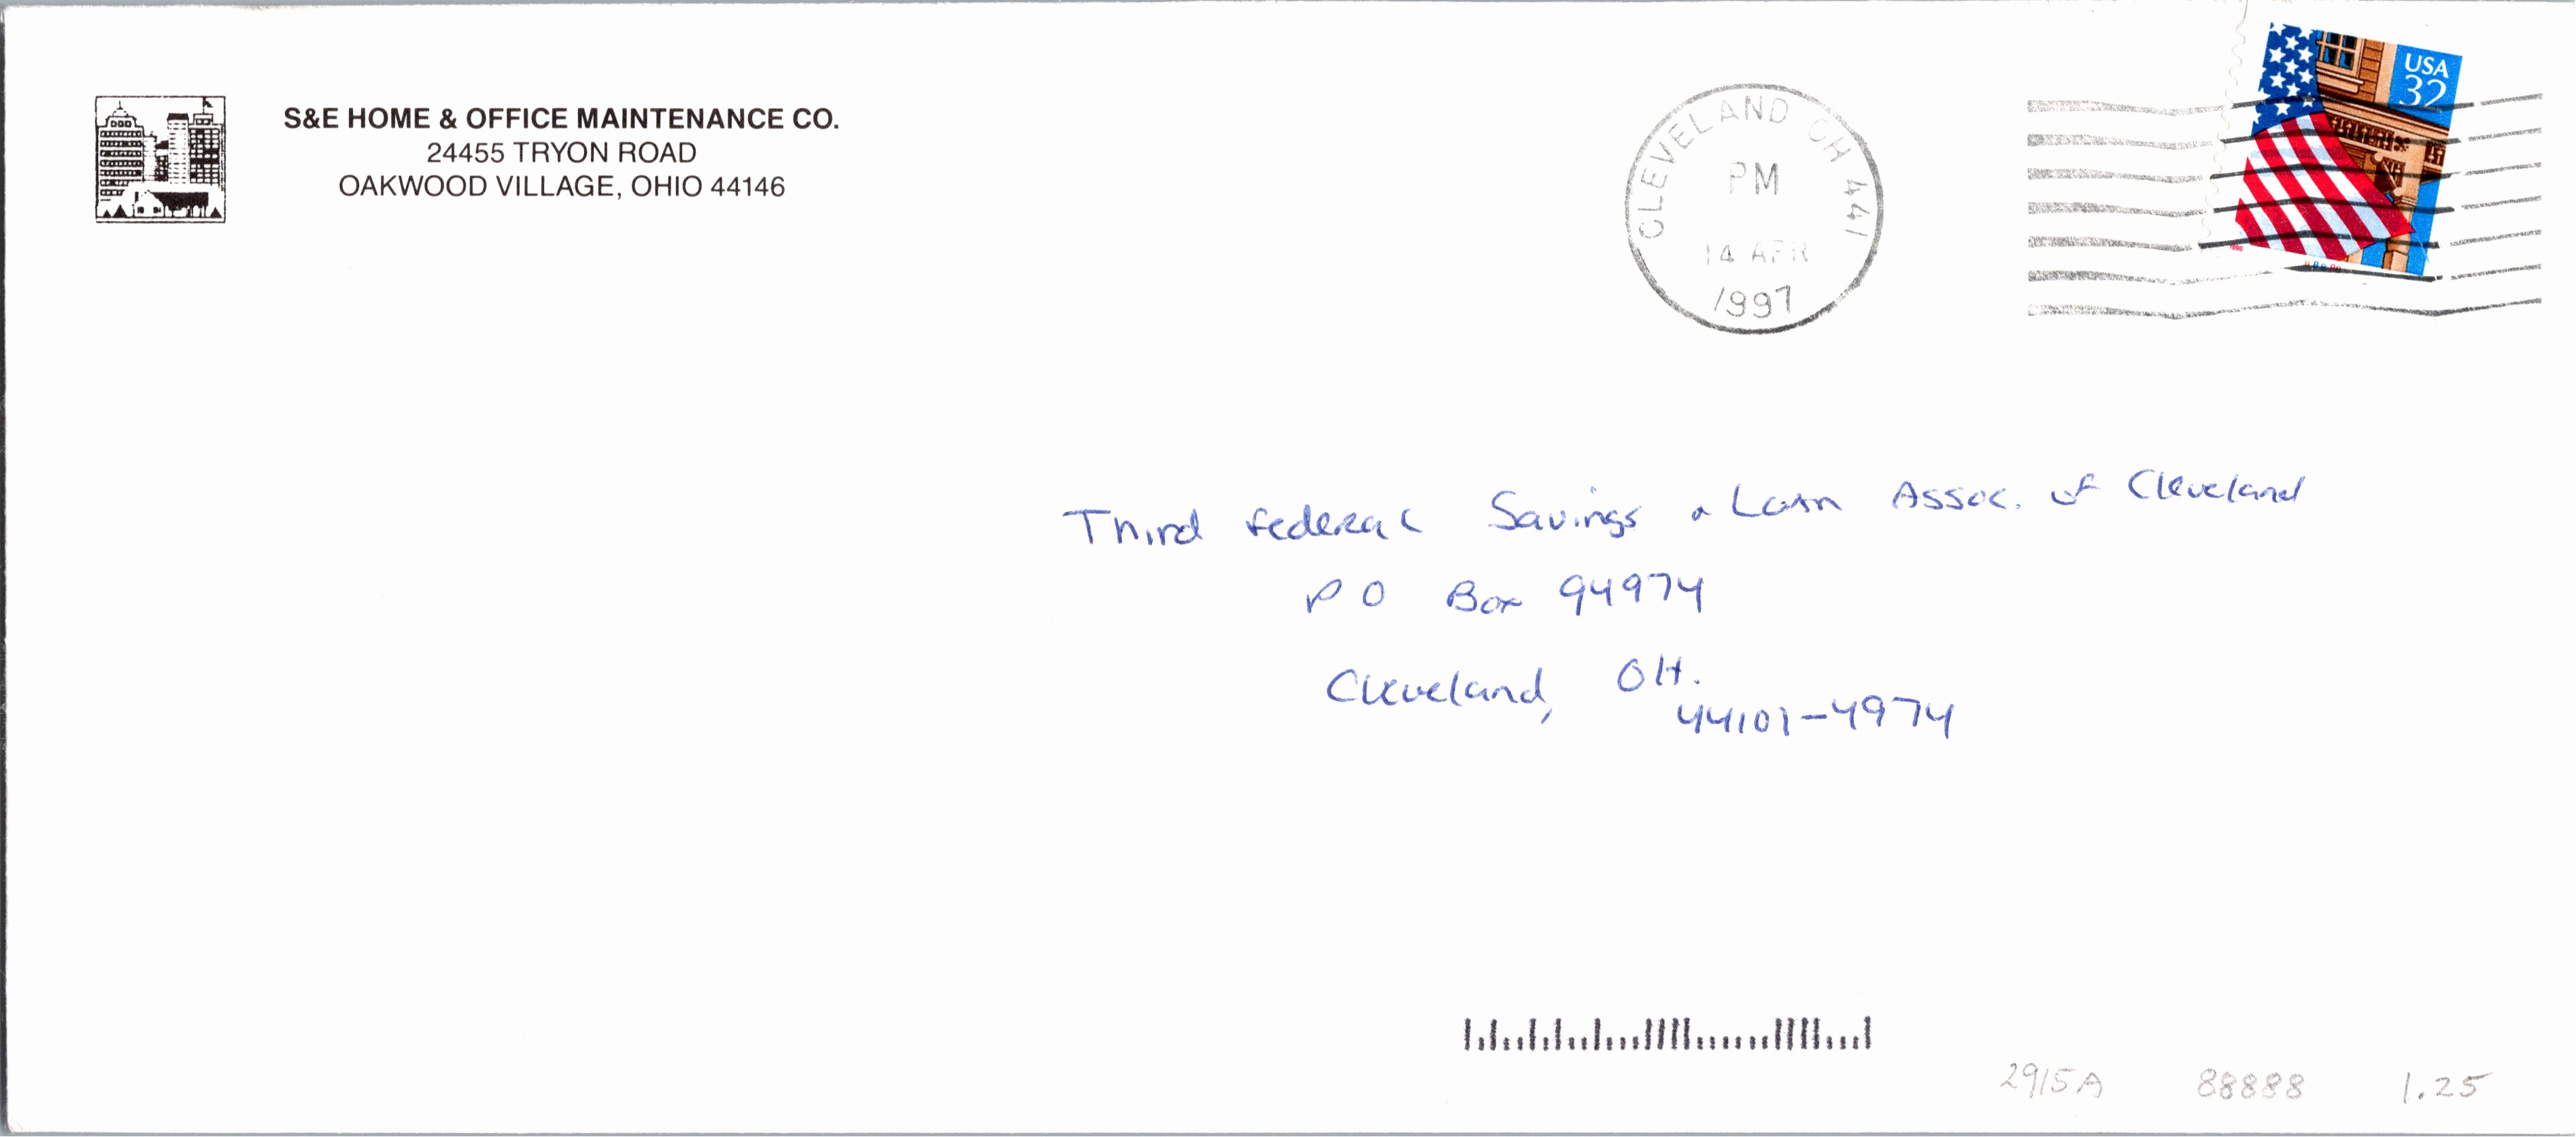 S&E HOME & OFFICE MAINTENANCE CO.
24455 TRYON ROAD
OAKWOOD VILLAGE, OHIO 44146
CLEVELAND OH 441
PM
14 APR
1997
USA
32
Third Federal Savings & Loan Assoc. of Cleveland
PO Box 94974
Cleveland, OH.
44101-4974
2915A 88888 1.25